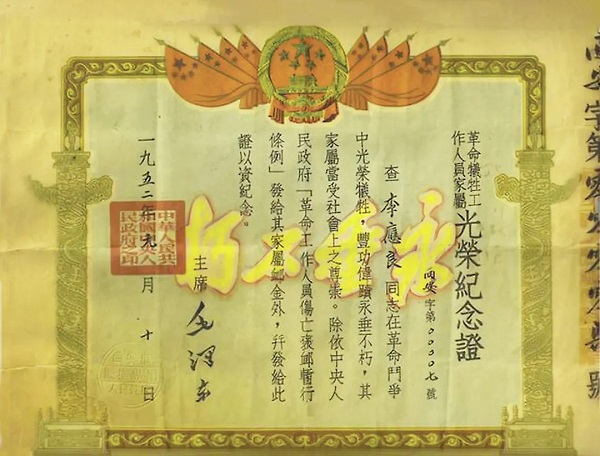 南安字第零
號
革命犧牲工
作人員家屬
光榮紀念證
南安字第00007號
查李應良同志在革命鬥爭
中光榮犧牲，豐功偉蹟永垂不朽，其
家屬當受社會上之尊崇。除依中央人
民政府「革命工作人員傷亡褒卹暫行
條例」發給其家屬卹金外，幷發給此
證以資紀念。
主席 毛澤東
一九五二年九月十日
中華人民共
和國中央人
民政府之印
永垂不朽